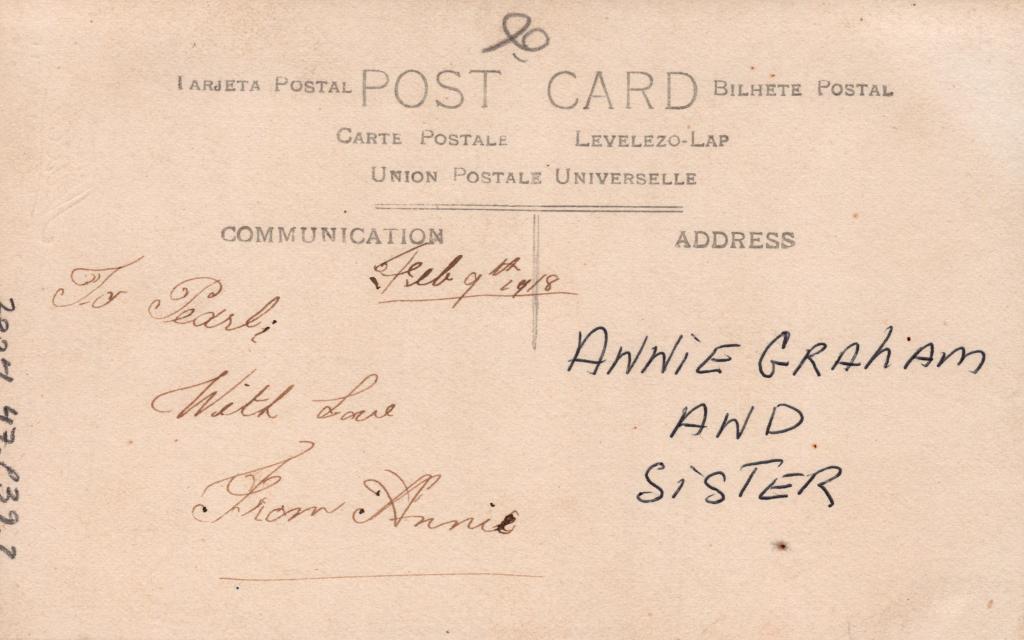 TARJETA POSTAL POST CARD BILHETE POSTAL
CARTE POSTALE LEVELEZO-LAP
UNION POSTALE UNIVERSELLE
COMMUNICATION
ADDRESS
Feb 9th 1918
To Pearl;
With Love
From Annie
ANNIE GRAHAM
AND
SISTER